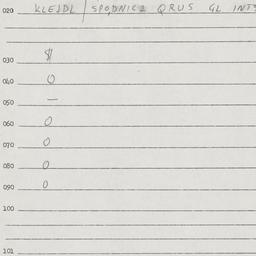 020 KLEJDL / SPODNICZ QRUS GL INT
030 $
040 0
050 —
060 0
070 0
080 0
090 0
100
101